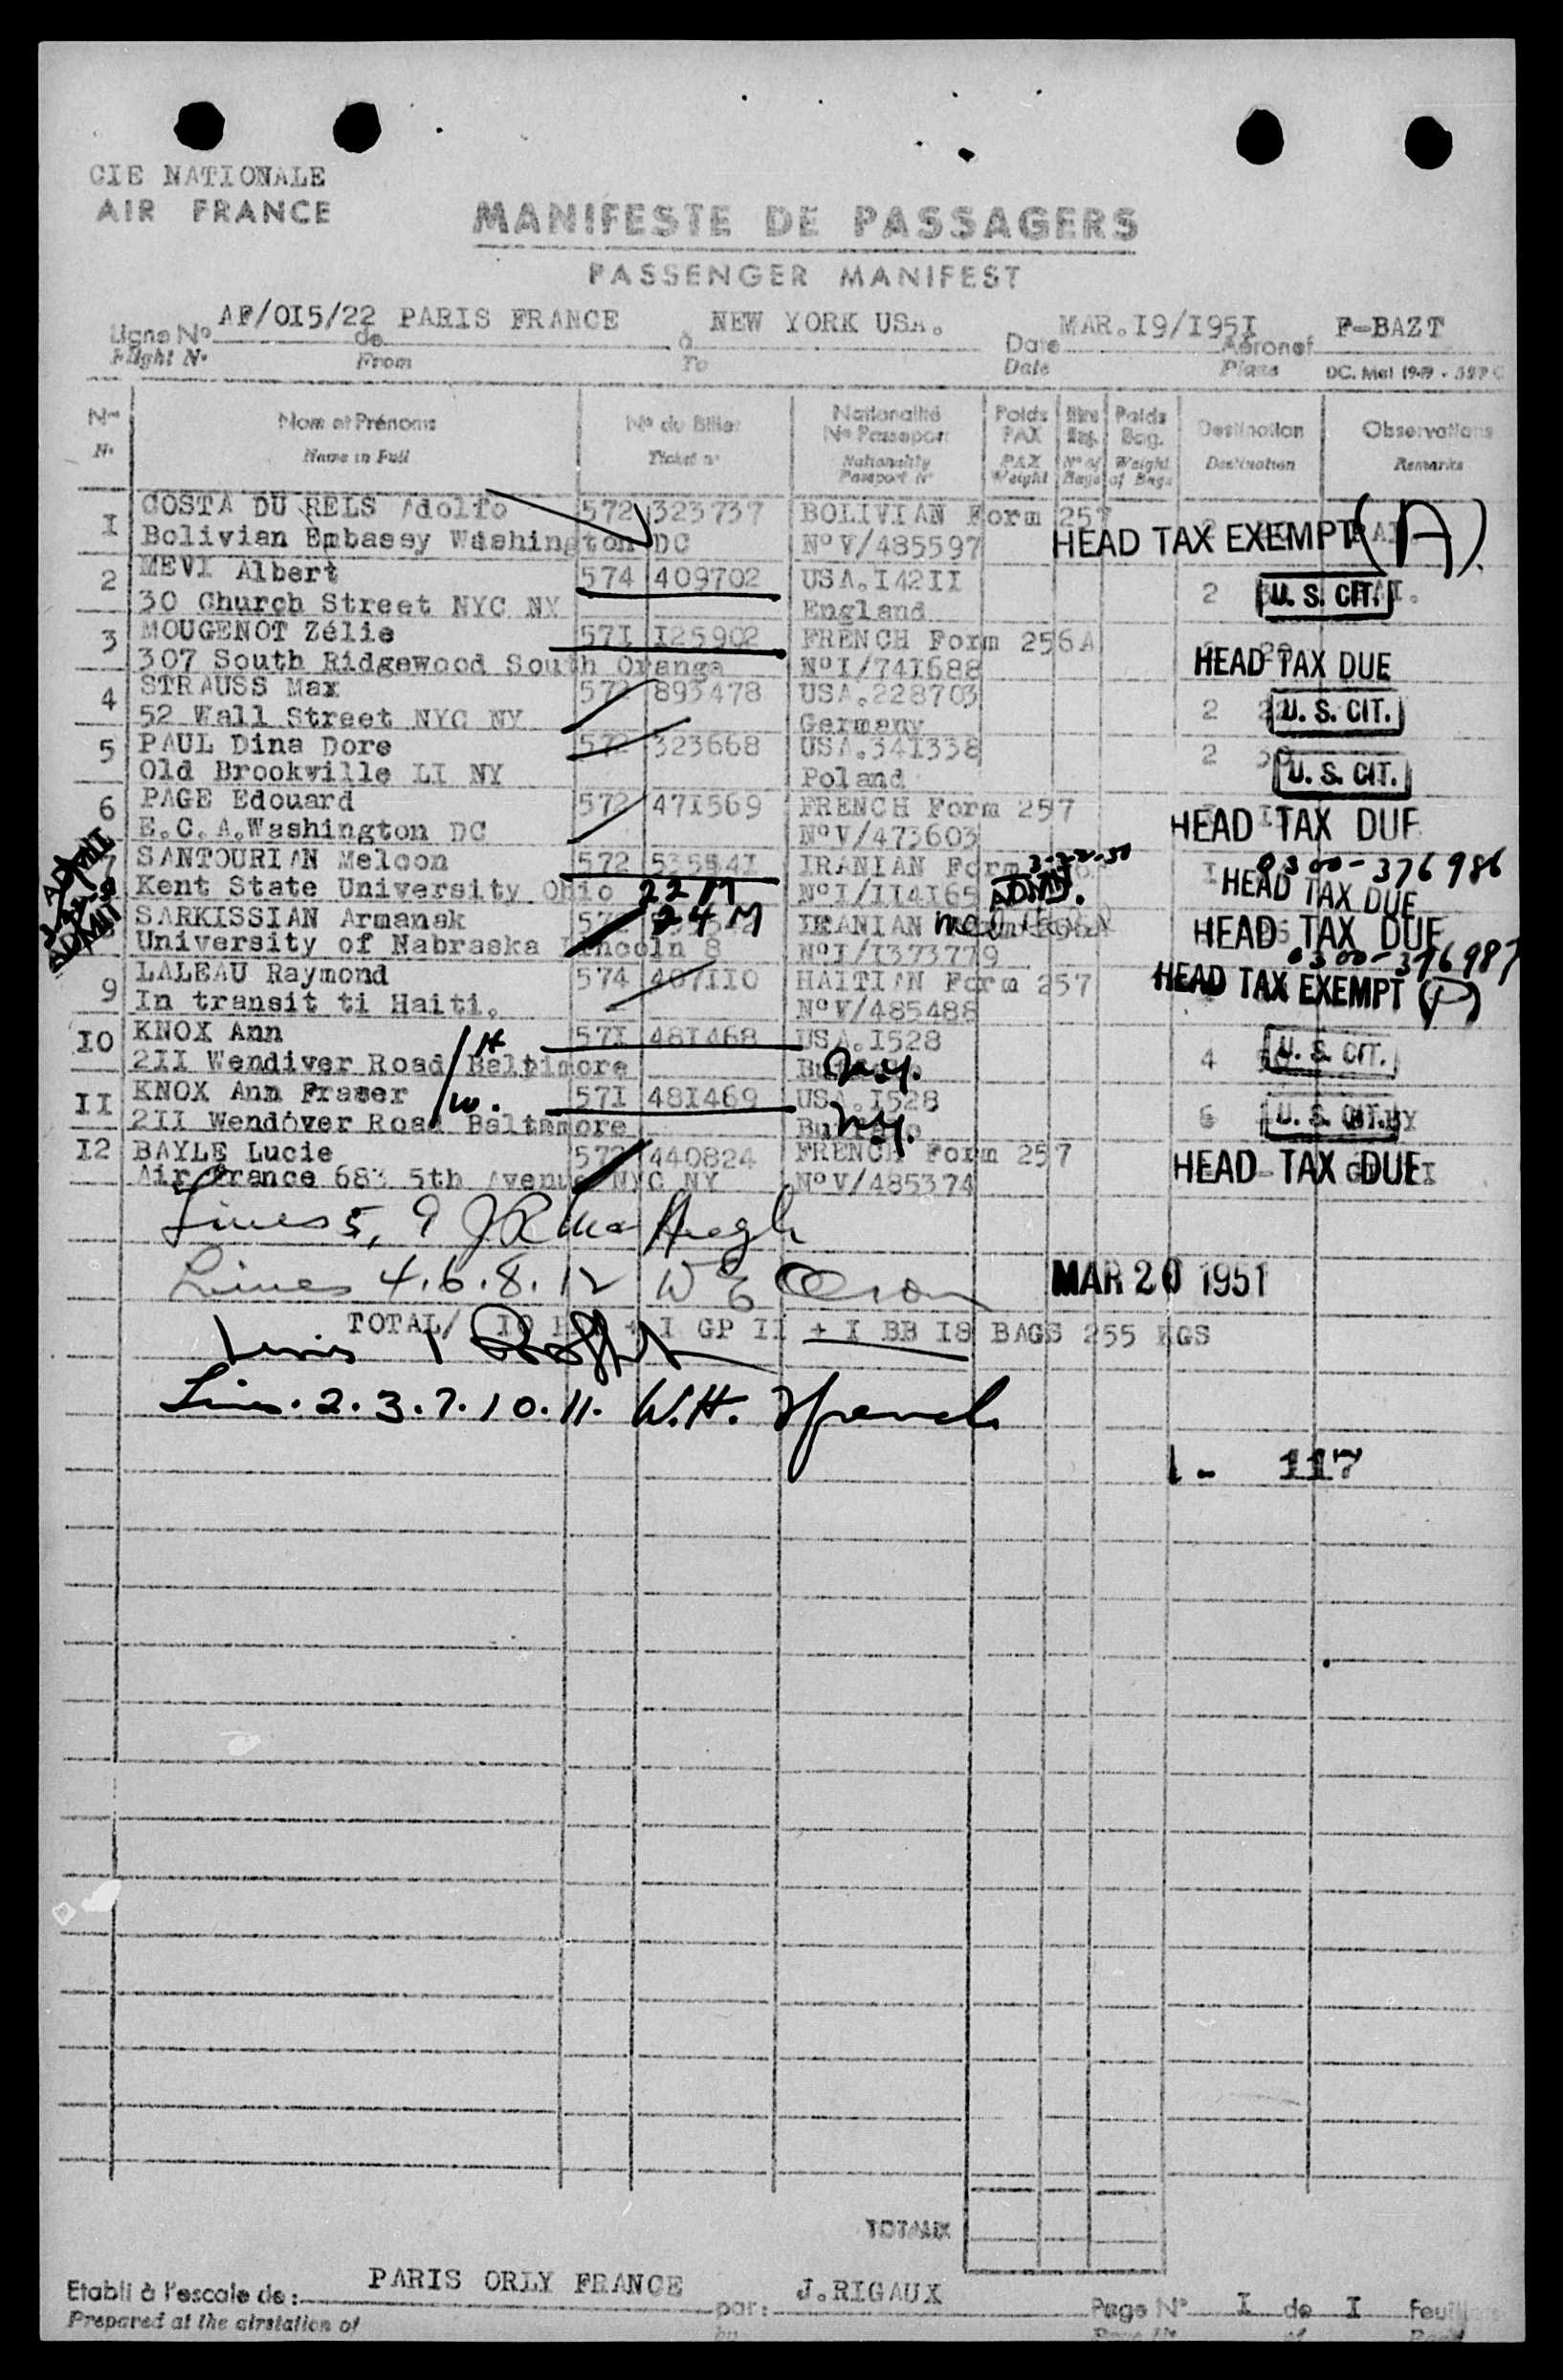 CIE NATIONALE
AIR FRANCE
MANIFESTE DE PASSAGERS
PASSENGER MANIFEST
Ligne No AF/OI5/22 de PARIS FRANCE à NEW YORK USA. Date MAR.I9/I95I Aéronef F-BAZT
Flight No From To Date Plane DC. Mal 1949
No Nom et Prénoms No du Billet Nationalité No Passeport Poids PAX Nbre Bag. Poids Bag. Destination Observations
No Name in Full Ticket no Nationality Passport No PAX Weight No of Bags Weight of Bags Destination Remarks
I COSTA DU RELS Adolfo 572 323737 BOLIVIAN Form 257
Bolivian Embassy Washington DC No V/485597 HEAD TAX EXEMPT (A)
2 MEVI Albert 574 409702 USA.I42II 2 U. S. CIT.
30 Church Street NYC NY England
3 MOUGENOT Zélie 57I I25902 FRENCH Form 256A
307 South Ridgewood South Oranga No I/741688 HEAD TAX DUE
4 STRAUSS Max 572 893478 USA.228703 2 U. S. CIT.
52 Wall Street NYC NY Germany
5 PAUL Dina Dore 572 323668 USA.34I338 2 30 U. S. CIT.
Old Brookville LI NY Poland
6 PAGE Edouard 572 47I569 FRENCH Form 257
E.C.A.Washington DC No V/473603 HEAD TAX DUE
ADMIT 7 SANTOURIAN Melcon 572 53554I IRANIAN Form 3-22-51 0300-376986
Kent State University Ohio 22 M No I/II4I65 ADMIT. HEAD TAX DUE
ADMIT SARKISSIAN Armanak 572 24 M IRANIAN HEAD TAX DUE
University of Nabraska Lincoln 8 No I/I373779 0300-376987
9 LALEAU Raymond 574 407II0 HAITIAN Form 257 HEAD TAX EXEMPT (P)
In transit ti Haiti. No V/485488
IO KNOX Ann H 57I 48I468 USA.I528 4 U. S. CIT.
2II Wendiver Road Beltimore Buffalo N.Y.
II KNOX Ann Fraser W. 57I 48I469 USA.I528 U. S. CIT.
2II Wendover Road Baltamore Buffalo N.Y.
I2 BAYLE Lucie 572 440824 FRENCH Form 257
Air France 683 5th Avenue NYC NY No V/485374 HEAD TAX DUE
Lines 5, 9
Lines 4.6.8.12 W E Olson MAR 20 1951
TOTAL/ IO + I GP II + I BB I8 BAGS 255 KGS
Lines 1
Lines. 2.3.7.10.11. W.H. French
1 - 117
TOTAUX
Etabli à l'escale de: PARIS ORLY FRANCE par: J.RIGAUX Page No I de I
Prepared at the airstation of by